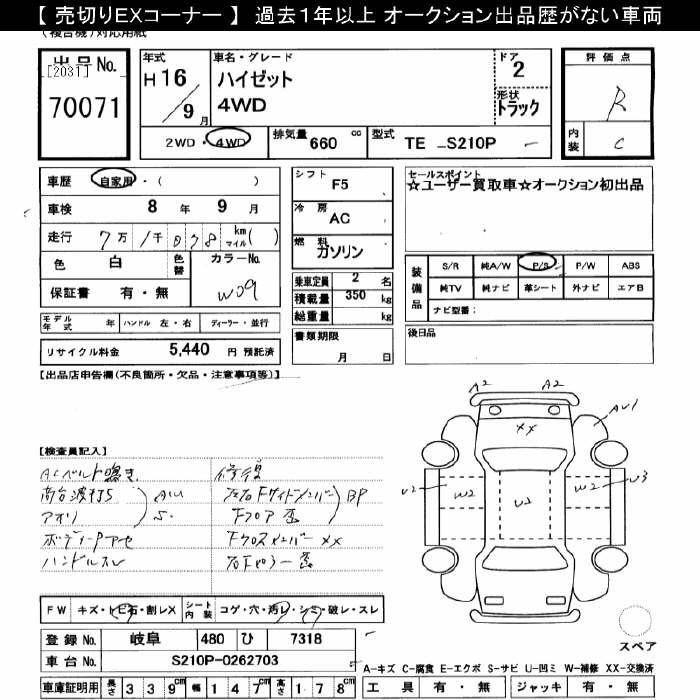 【 売切りEXコーナー 】 過去１年以上 オークション出品歴がない車両
(複合機)対応用紙
出品No.
[2031]
70071
年式
H16
9月
車名・グレード
ハイゼット
4WD
ドア
2
形状
トラック
2WD・4WD
排気量 660 cc
型式 TE_S210P
評価点
R
内装
C
車歴 自家用・( )
車検 8年 9月
走行 7万1千078 km マイル( )
色 白 色替
カラーNo.
W09
保証書 有・無
シフト
F5
冷房
AC
燃料
ガソリン
乗車定員 2 名
積載量 350 kg
総重量 kg
セールスポイント
☆ユーザー買取車☆オークション初出品
装備品
S/R 純A/W P/S P/W ABS
純TV 純ナビ 革シート 外ナビ エアB
ナビ型番:
モデル年式 年 ハンドル 左・右 ディーラー・並行
リサイクル料金 5,440 円 預託済
書類期限
月 日
後日品
【出品店申告欄(不良箇所・欠品・注意事項等)】
A2 A2
AU1
XX
U2 W2 U2 W2 U3
【検査員記入】
ACベルト鳴き
荷台波打S
アオリ
AU
S
ボディーPアセ
ハンドルスレ
修復
Fフロア歪
BP
FクロスメンバーXX
FW キズ・トビ石・割レX
シート内装 コゲ・穴・汚レ・シミ・破レ・スレ
登録No. 岐阜 480 ひ 7318
車台No. S210P-0262703
車庫証明用 長さ 339cm 幅 147cm 高さ 178cm
スペア
A-キズ C-腐食 E-エクボ S-サビ U-凹ミ W-補修 XX-交換済
工具 有・無 ジャッキ 有・無